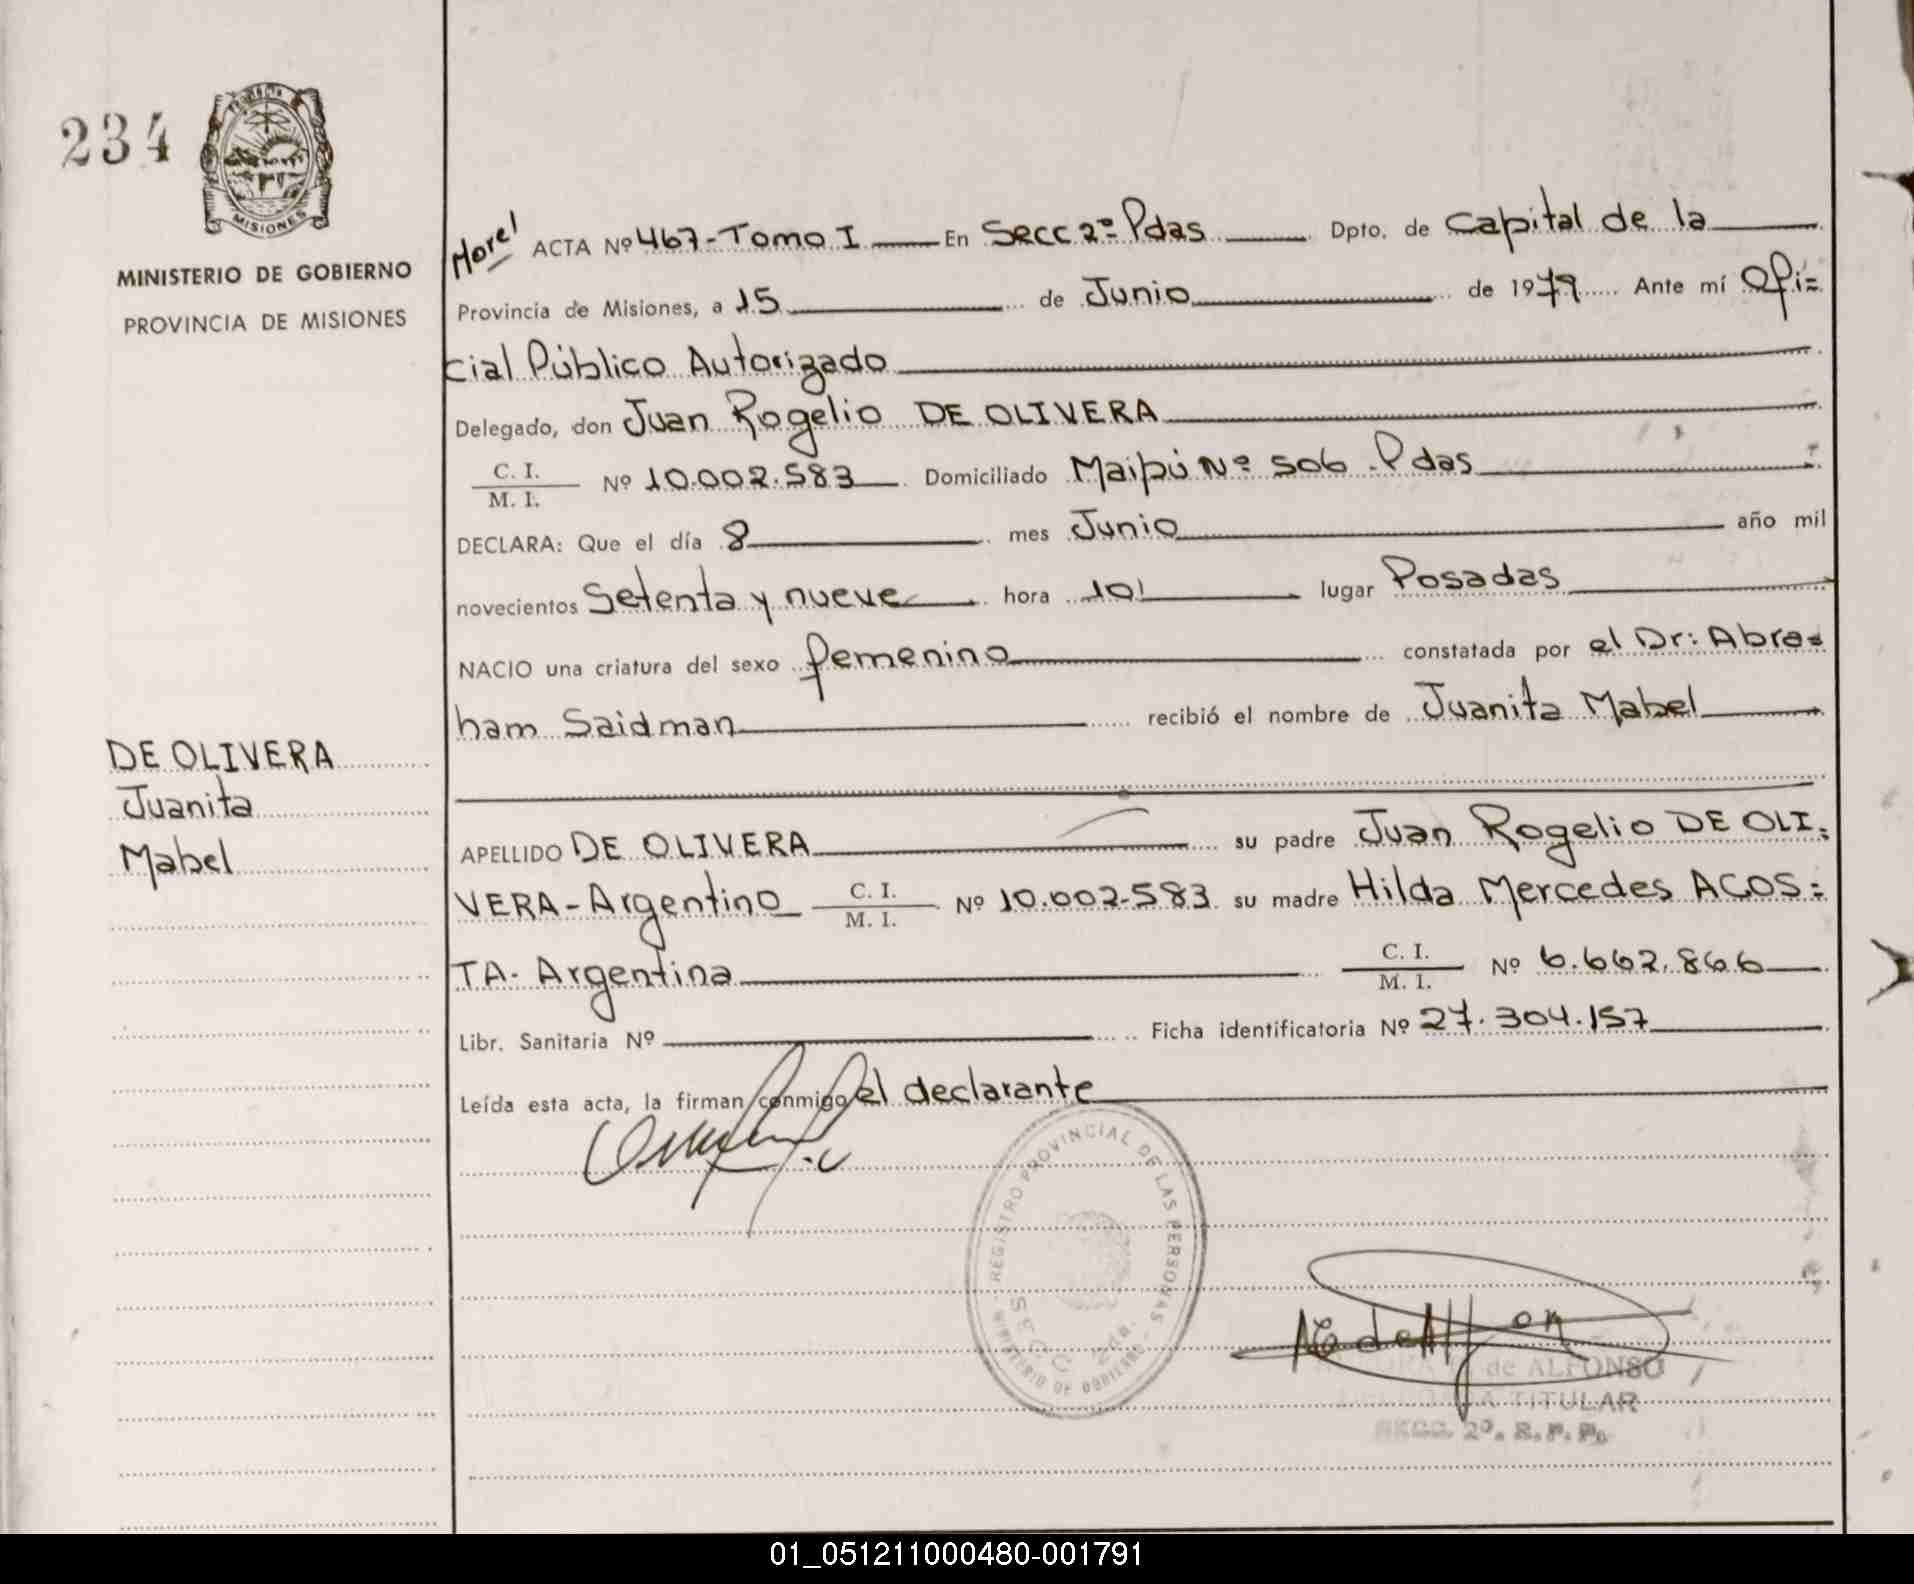 234
PROVINCIA
MISIONES
MINISTERIO DE GOBIERNO
PROVINCIA DE MISIONES
Morel ACTA Nº 467-Tomo I En Secc 2º Pdas Dpto. de Capital de la
Provincia de Misiones, a 15 de Junio de 1979 Ante mí Ofi=
cial Público Autorizado
Delegado, don Juan Rogelio DE OLIVERA
C. I.
M. I. Nº 10.002.583 Domiciliado Maipú Nº 506. Pdas
DECLARA: Que el día 8 mes Junio año mil
novecientos Setenta y nueve hora 10' lugar Posadas
NACIO una criatura del sexo femenino constatada por el Dr: Abra=
ham Saidman recibió el nombre de Juanita Mabel
DE OLIVERA
Juanita
Mabel
APELLIDO DE OLIVERA su padre Juan Rogelio DE OLI=
VERA-Argentino C. I. M. I. Nº 10.002-583 su madre Hilda Mercedes ACOS=
TA- Argentina C. I. M. I. Nº 6.662.866
Libr. Sanitaria Nº Ficha identificatoria Nº 27.304.157
Leída esta acta, la firman conmigo el declarante
REGISTRO PROVINCIAL DE LAS PERSONAS
SECC. 2da.
MINISTERIO DE GOBIERNO
de ALFONSO
TITULAR
SECC. 2º. R.P.P.
01_051211000480-001791